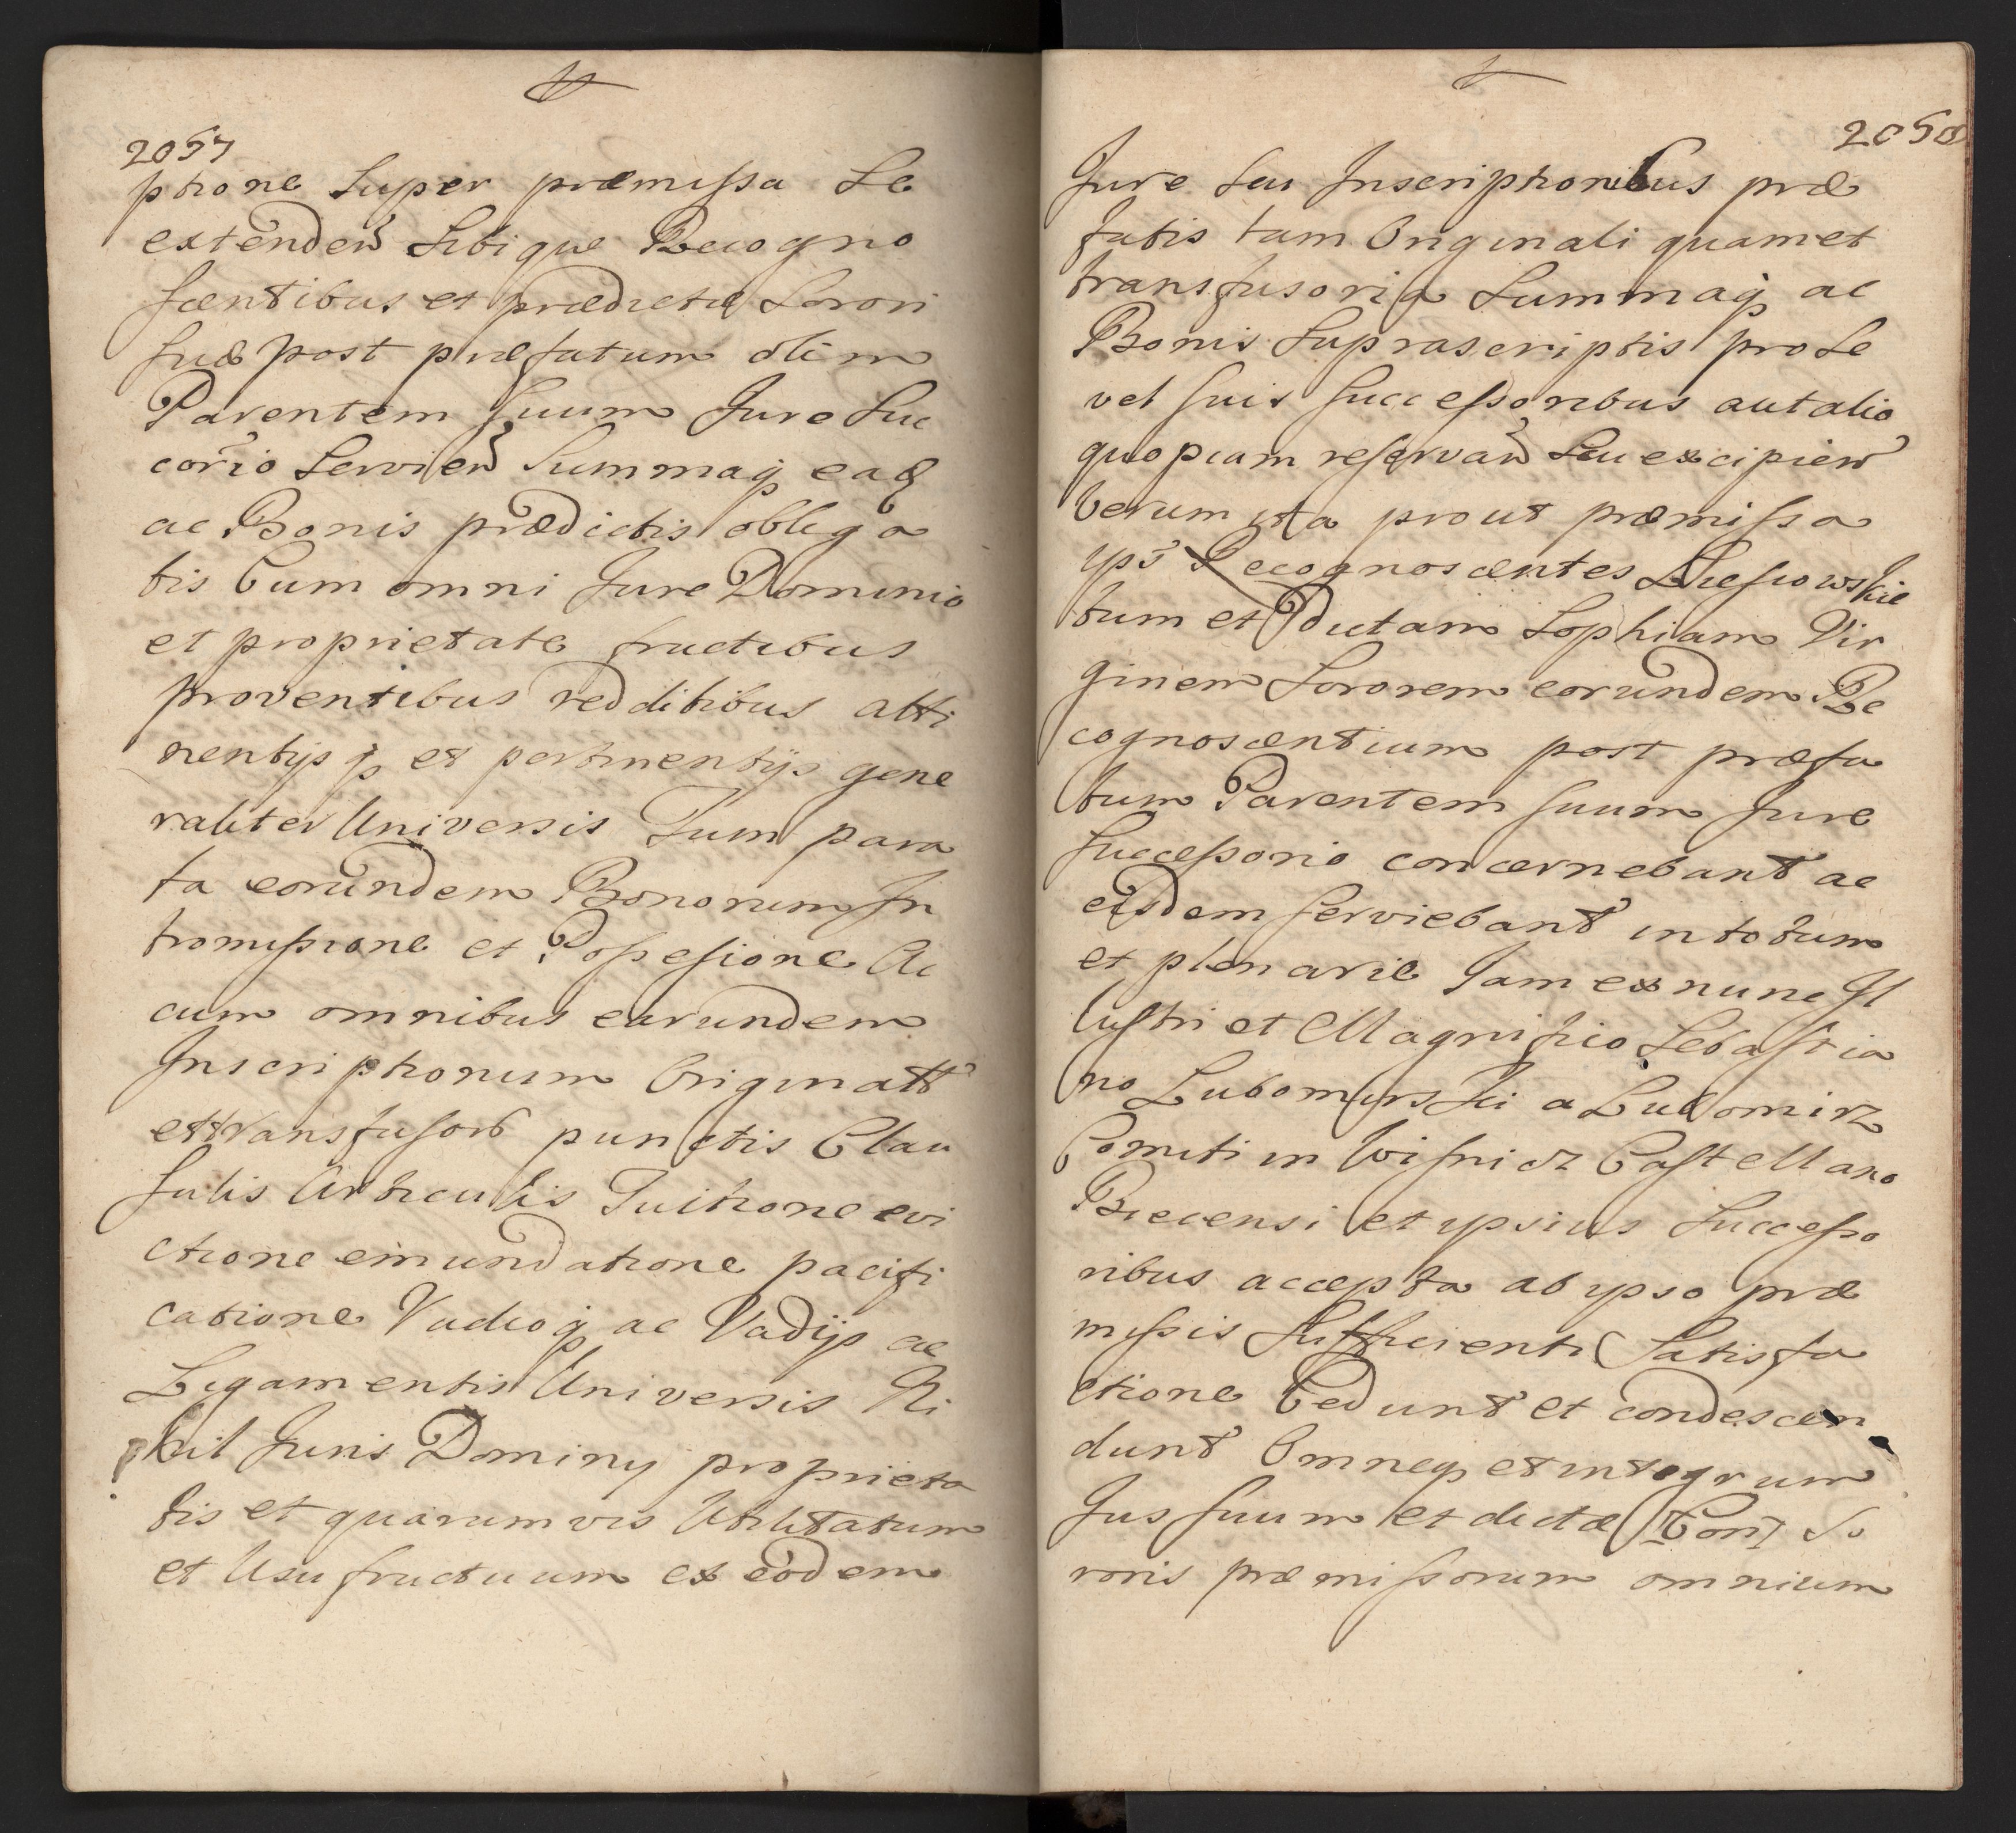 2057
ptione Super præmissa Se
extenden Sibique Recogno
scentibus et prædictæ Sorori
suæ post præfatum olim
Parentem suum Jure Suc
corio Servien Summaq eaq
ac Bonis prædictis obliga
tis Cum omni Jure Dominio
et proprietate fructibus
proventibus redditibus atti
nentijsq et pertinentijs gene
raliter Universis Tum para
ta eorundem Bonorum In
tromissione et Possessione Ac
cum omnibus earundem
Inscriptionum Originalt
et transfusor punctis Clau
sulis Articulis Tuitione evi
ctione emundatione pacifi
catione Vadioq ac Vadijs ac
Ligamentis Universis Ni
hil Juris Dominy proprieta
tis et quarumvis Utilitatum
et Usufructuum ex eodem
2058
Jure seu Inscriptionibus præ
fatis tam Originali quamet
transfusoria Summaq ac
Bonis Supra scriptis pro Se
vel suis successoribus aut alio
quopiam reservan Seu excipien
Verum ita prout præmissa
yps Recognoscentes
tum et Dictam Sophiam Vir
ginem Sororem eorundem Re
cognoscentium post præfa
tum Parentem suum Jure
Successorio concernebant ac
eisdem serviebant in totum
et plenarie Jam ex nunc Il
lustri et Magnifico Sebastia
no Lubomirski a Lubomirz
Comiti in Wisnicz Castellano
Biecensi et ypsius Successo
ribus accepta ab ypso præ
missis Sufficienti Satisfa
ctione Cedunt et condescen
dunt Omneq et integrum
Jus suum et dictæ So
roris præmissorum omnium